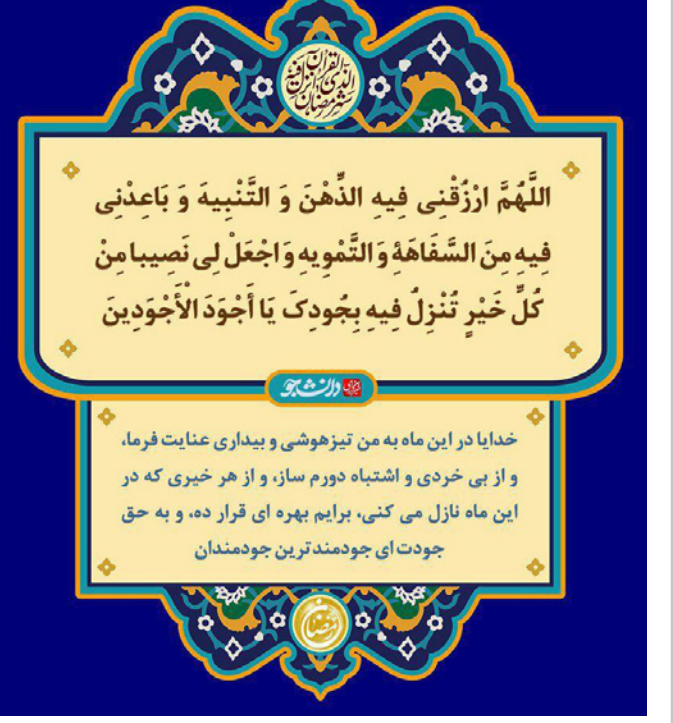 شهر رمضان الذی انزل فیه القرآن
اللَّهُمَّ ارْزُقْنِی فِیهِ الذِّهْنَ وَ التَّنْبِیهَ وَ بَاعِدْنِی
فِیهِ مِنَ السَّفَاهَةِ وَ التَّمْوِیهِ وَ اجْعَلْ لِی نَصِیبا مِنْ
کُلِّ خَیْرٍ تُنْزِلُ فِیهِ بِجُودِکَ یَا أَجْوَدَ الْأَجْوَدِینَ
دانشجو
خدایا در این ماه به من تیزهوشی و بیداری عنایت فرما،
و از بی خردی و اشتباه دورم ساز، و از هر خیری که در
این ماه نازل می کنی، برایم بهره ای قرار ده، و به حق
جودت ای جودمندترین جودمندان
رمضان